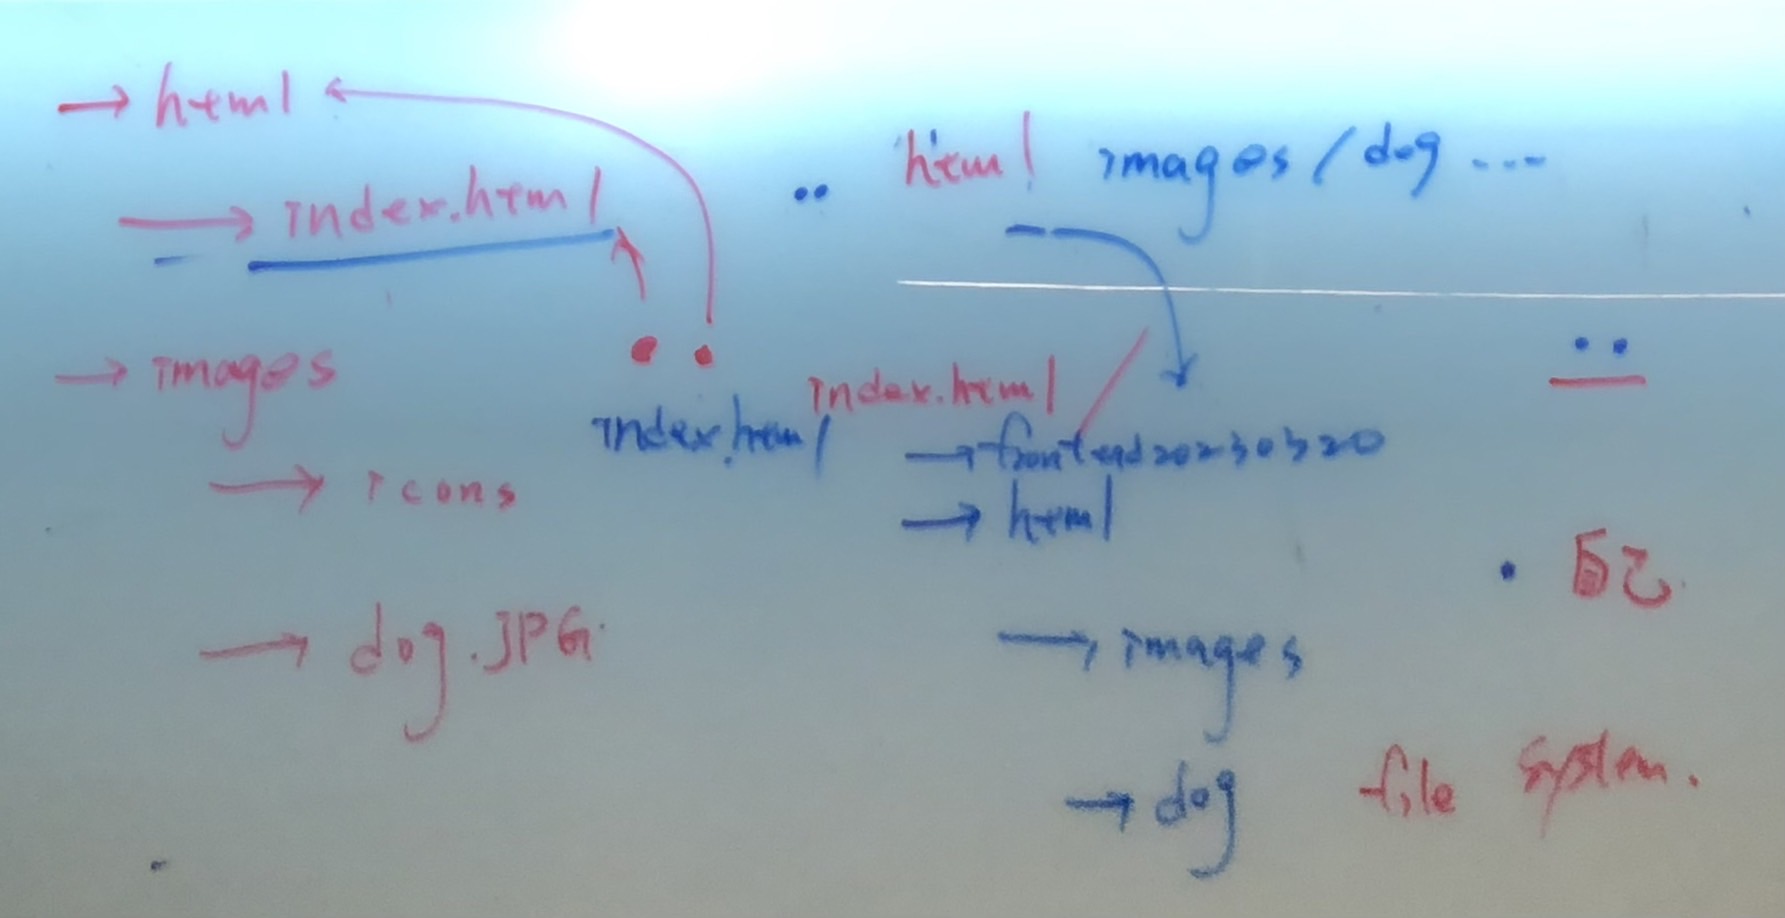 → html
→ index.html
→ images
→ icons
→ dog.JPG.
.. html images/dog ...
index.html
index.html
→ frontend20230320
→ html
→ images
→ dog
..
. 自己.
file system.